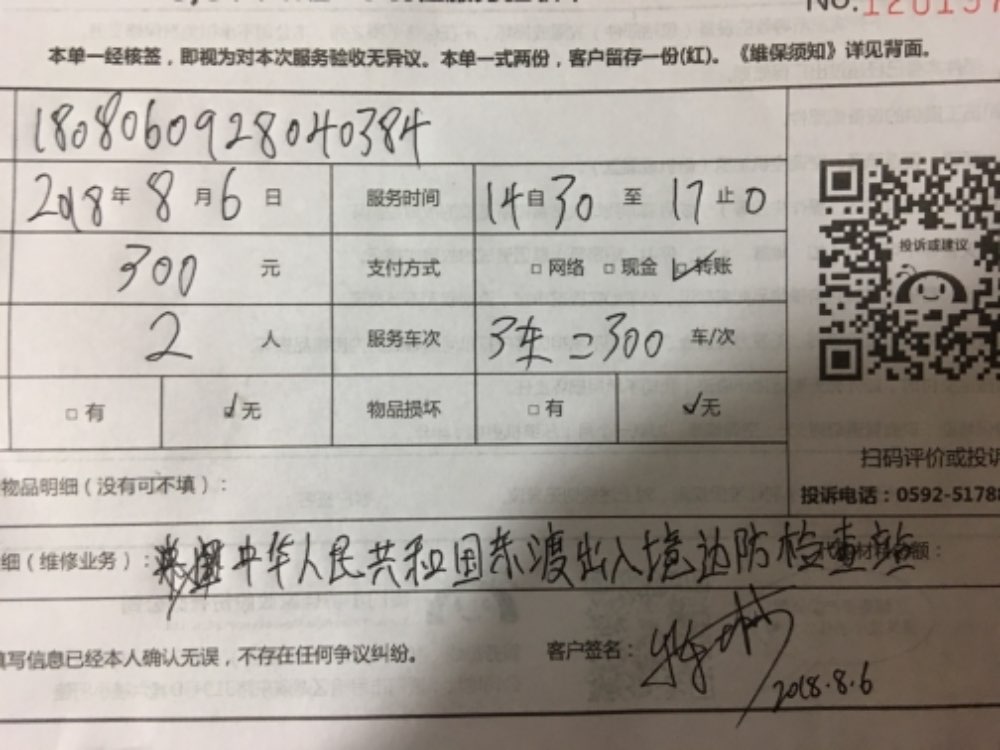 No.120197
本单一经核签，即视为对本次服务验收无异议。本单一式两份，客户留存一份(红)。《维保须知》详见背面。
180806092804038​4
2018年8月6日 服务时间 14自30至17止0
300元 支付方式 □网络 □现金 ☑转账
投诉或建议
2人 服务车次 3车=300车/次
□有 ☑无 物品损坏 □有 ☑无
扫码评价或投诉
物品明细（没有可不填）：
投诉电话：0592-51788
细（维修业务）：中华人民共和国东渡出入境边防检查站
填写信息已经本人确认无误，不存在任何争议纠纷。 客户签名：
2018.8.6